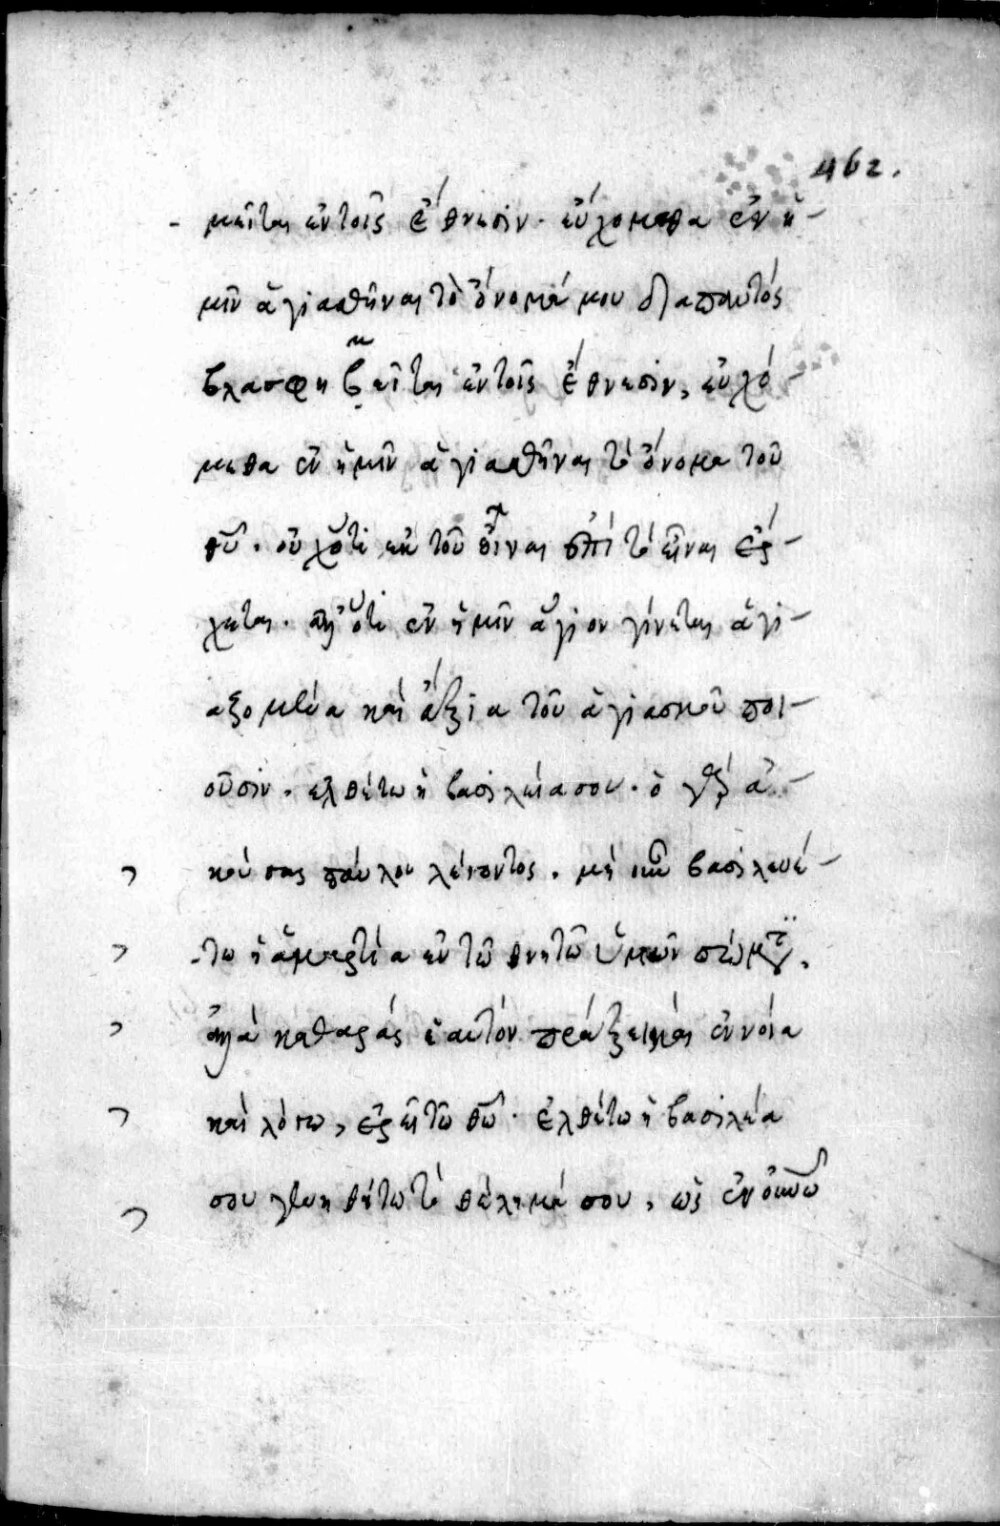 462.
μεῖται ἐν τοῖς ἔθνεσιν. εὐχόμεθα ἐν ἡ-
μῖν ἁγιασθῆναι τὸ ὄνομά μου διαπαντός
βλασφημεῖται ἐν τοῖς ἔθνεσιν, εὐχό-
μεθα ἐν ἡμῖν ἁγιασθῆναι τὸ ὄνομα τοῦ
θῦ. οὐχ ὅτι ἐκ τοῦ εἶναι ἐπὶ τὸ εἶναι ἔρ-
χεται. ἀλλ' ὅτι ἐν ἡμῖν ἅγιον γίνεται ἁγι-
αζομένα καὶ ἄξια τοῦ ἁγιασμοῦ ποι-
οῦσιν. ἐλθέτω ἡ βασιλεία σου. ὁ γὰρ ἀ-
κούσας παύλου λέγοντος. μὴ οὖν βασιλευέ-
τω ἡ ἁμαρτία ἐν τῶ θνητῶ ὑμῶν σώματι.
ἀλλὰ καθαρὰς ἑαυτὸν πράξει καὶ ἐννοία
καὶ λόγω, ἐρεῖ τῶ θῶ. ἐλθέτω ἡ βασιλεία
σου γενηθήτω τὸ θέλημά σου, ὡς ἐν οὐνῶ